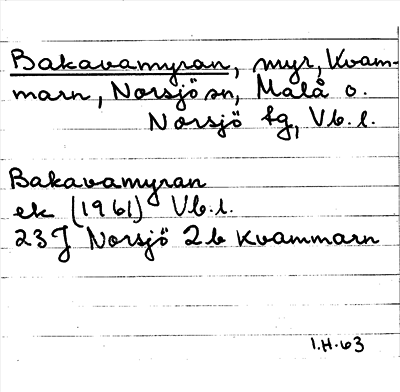 Bakavamyran, myr, Kvam-
marn, Norsjö sn, Malå o.
Norsjö tg, Vb. l.
Bakavamyran
ek (1961) Vb. l.
23J Norsjö 2b Kvammarn
I.H. 63